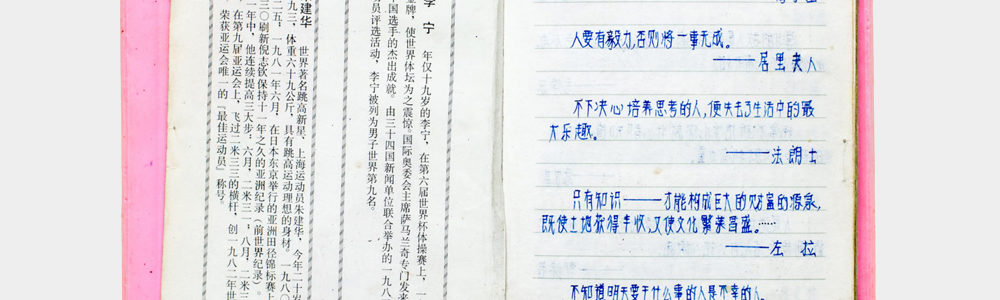 李宁 年仅十九岁的李宁，在第六届世界杯体操赛上，一
金牌，使世界体坛为之震惊。国际奥委会主席萨马兰奇专门发来
国选手的杰出成就。由三十四国新闻单位联合举办的一九八
员评选活动，李宁被列为男子世界第九名。
朱建华 世界著名跳高新星、上海运动员朱建华，今年二十岁
九三，体重六十九公斤，具有跳高运动理想的身材。一九八〇
二五；一九八一年六月，在日本东京举行的亚洲田径锦标赛上
三〇刷新倪志钦保持十一年之久的亚洲纪录（前世界纪录）。
年中，他连续提高三大步：六月，二米三一；八月，二米三
，在第九届亚运会上，飞过二米三三的横杆，创一九八二年世
荣获亚运会唯一的『最佳运动员』称号。
人要有毅力,否则将一事无成。
———居里夫人
不下决心培养思考的人,便失去了生活中的最
大乐趣。
———法朗士
只有知识——才能构成巨大的财富的源泉,
既使土地获得丰收,又使文化繁荣昌盛。……
———左拉
不知道明天要干什么事的人是不幸的人。